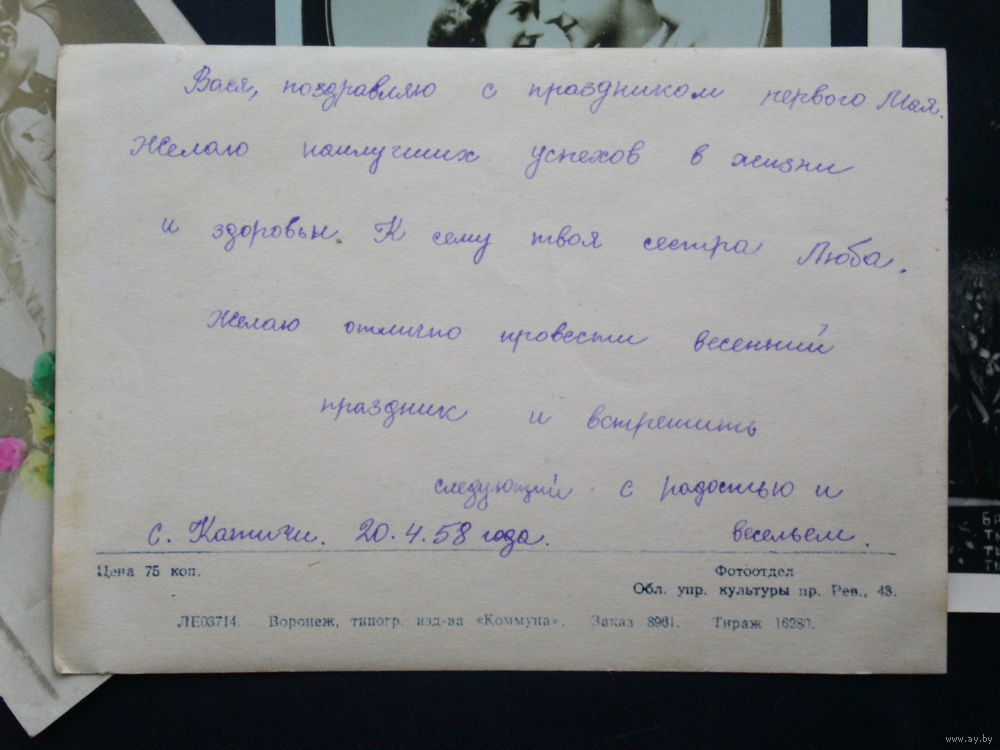 Вася, поздравляю с праздником первого Мая.
Желаю наилучших успехов в жизни
и здоровьи. К сему твоя сестра Люба.
Желаю отлично провести весенний
праздник и встретить
следующий с радостью и
весельем.
с. Катичи. 20.4.58 года.
Цена 75 коп.
Фотоотдел
Обл. упр. культуры пр. Рев., 43.
ЛЕ03714. Воронеж, типогр. изд-ва «Коммуна». Заказ 8961. Тираж 16280.
www.ay.by